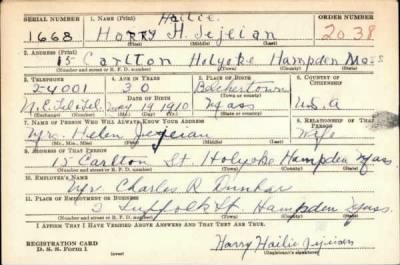 SERIAL NUMBER 1. NAME (Print) Hailie ORDER NUMBER
1668 Harry H. Jejeian 2038
(First) (Middle) (Last)
2. ADDRESS (Print)
15 Carlton Holyoke Hampden Mass
(Number and street or R. F. D. number) (Town) (County) (State)
3. TELEPHONE 4. AGE IN YEARS 5. PLACE OF BIRTH 6. COUNTRY OF CITIZENSHIP
2-4001 30 Belchertown
DATE OF BIRTH (Town or county)
N.E. Tel & Tel. May 19 1910 Mass U.S.A
(Exchange) (Number) (Mo.) (Day) (Yr.) (State or country)
7. NAME OF PERSON WHO WILL ALWAYS KNOW YOUR ADDRESS 8. RELATIONSHIP OF THAT PERSON
Mrs. Helen Jejeian Wife
(Mr., Mrs., Miss) (First) (Middle) (Last)
9. ADDRESS OF THAT PERSON
15 Carlton St. Holyoke Hampden Mass
(Number and street or R. F. D. number) (Town) (County) (State)
10. EMPLOYER'S NAME
Mr. Charles R Dunbar
11. PLACE OF EMPLOYMENT OR BUSINESS
Suffolk St. Hampden Mass.
(Number and street or R. F. D. number) (Town) (County) (State)
I AFFIRM THAT I HAVE VERIFIED ABOVE ANSWERS AND THAT THEY ARE TRUE.
REGISTRATION CARD Harry Hailie Jejeian
D. S. S. Form 1 (over) (Registrant's signature)